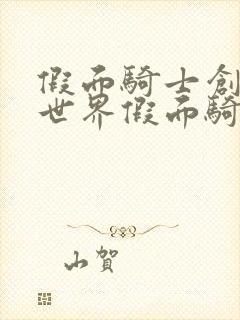 假面騎士創
世界假面騎
山賀